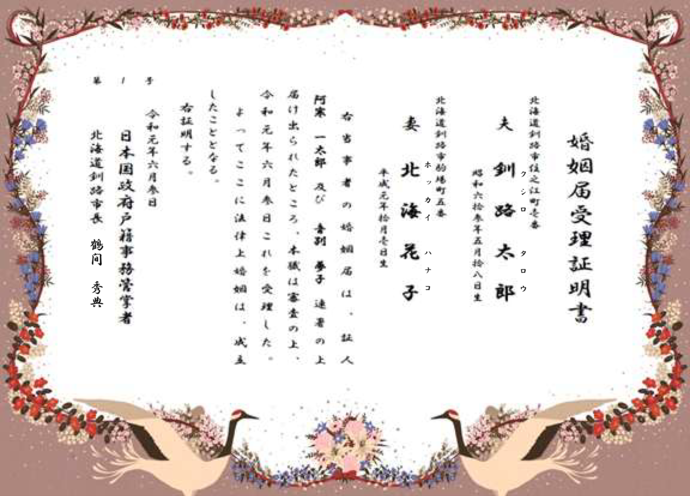 婚姻届受理証明書
北海道釧路市住之江町壱番
夫 釧路 太郎
クシロ タロウ
昭和六拾参年五月拾八日生
北海道釧路市駒場町五番
妻 北海 花子
ホッカイ ハナコ
平成元年拾月壱日生
右当事者の婚姻届は、証人
阿寒 一太郎 及び 音別 夢子 連署の上
届け出られたところ、本職は審査の上、
令和元年六月参日これを受理した。
よってここに法律上婚姻は、成立
したこととなる。
右証明する。
令和元年六月参日
日本国政府戸籍事務管掌者
北海道釧路市長 鶴間 秀典
第 1 号